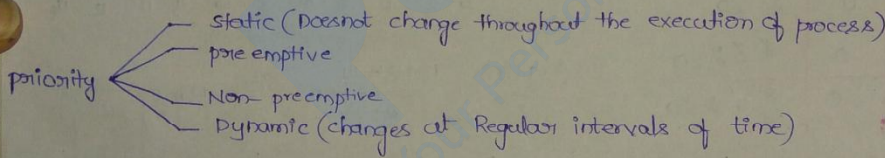 static (Doesnot change throughout the execution of process)
pre emptive
priority
Non-preemptive
Dynamic (changes at Regular intervals of time)